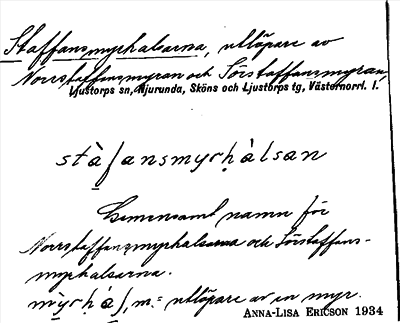 Staffansmyrhalsarna, utlöpare av
Norrstaffansmyran och Sörstaffansmyran,
Ljustorps sn, Njurunda, Sköns och Ljustorps tg, Västernorrl. l.
stàfansmyrḥàlsan
Gemensamt namn för
Norrstaffansmyrhalsarna och Sörstaffans-
myrhalsarna.
myrḥàl, m. = utlöpare av en myr.
ANNA-LISA ERICSON 1934